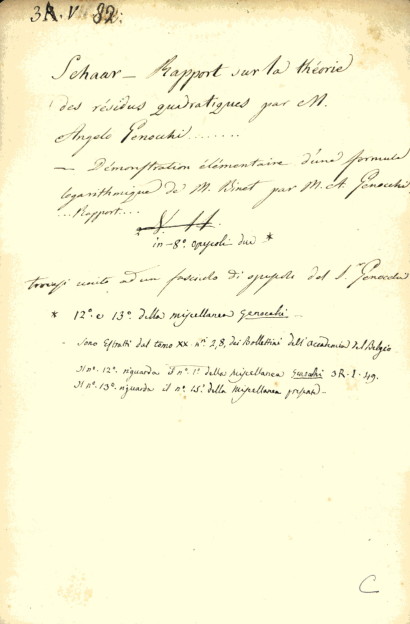 3R. V 82.
Schaar — Rapport sur la théorie
des résidus quadratiques par M.
Angelo Genocchi........
— Démonstration élémentaire d'une formule
logarithmique de M. Binet par M. A. Genocchi
...Rapport....
in-8º. opuscoli due *
trovasi unito ad un fascicolo di opuscoli del S.r Genocchi
* 12º. e 13º. della miscellanea Genocchi.
Sono Estratti dal tomo XX. ni. 2,8, dei Bollettini dell'accademia del Belgio
Il nº. 12º. riguarda il nº. 1º. della Miscellanea 3R-I-49.
Il nº. 13º. riguarda il nº. 15º. della Miscellanea
C